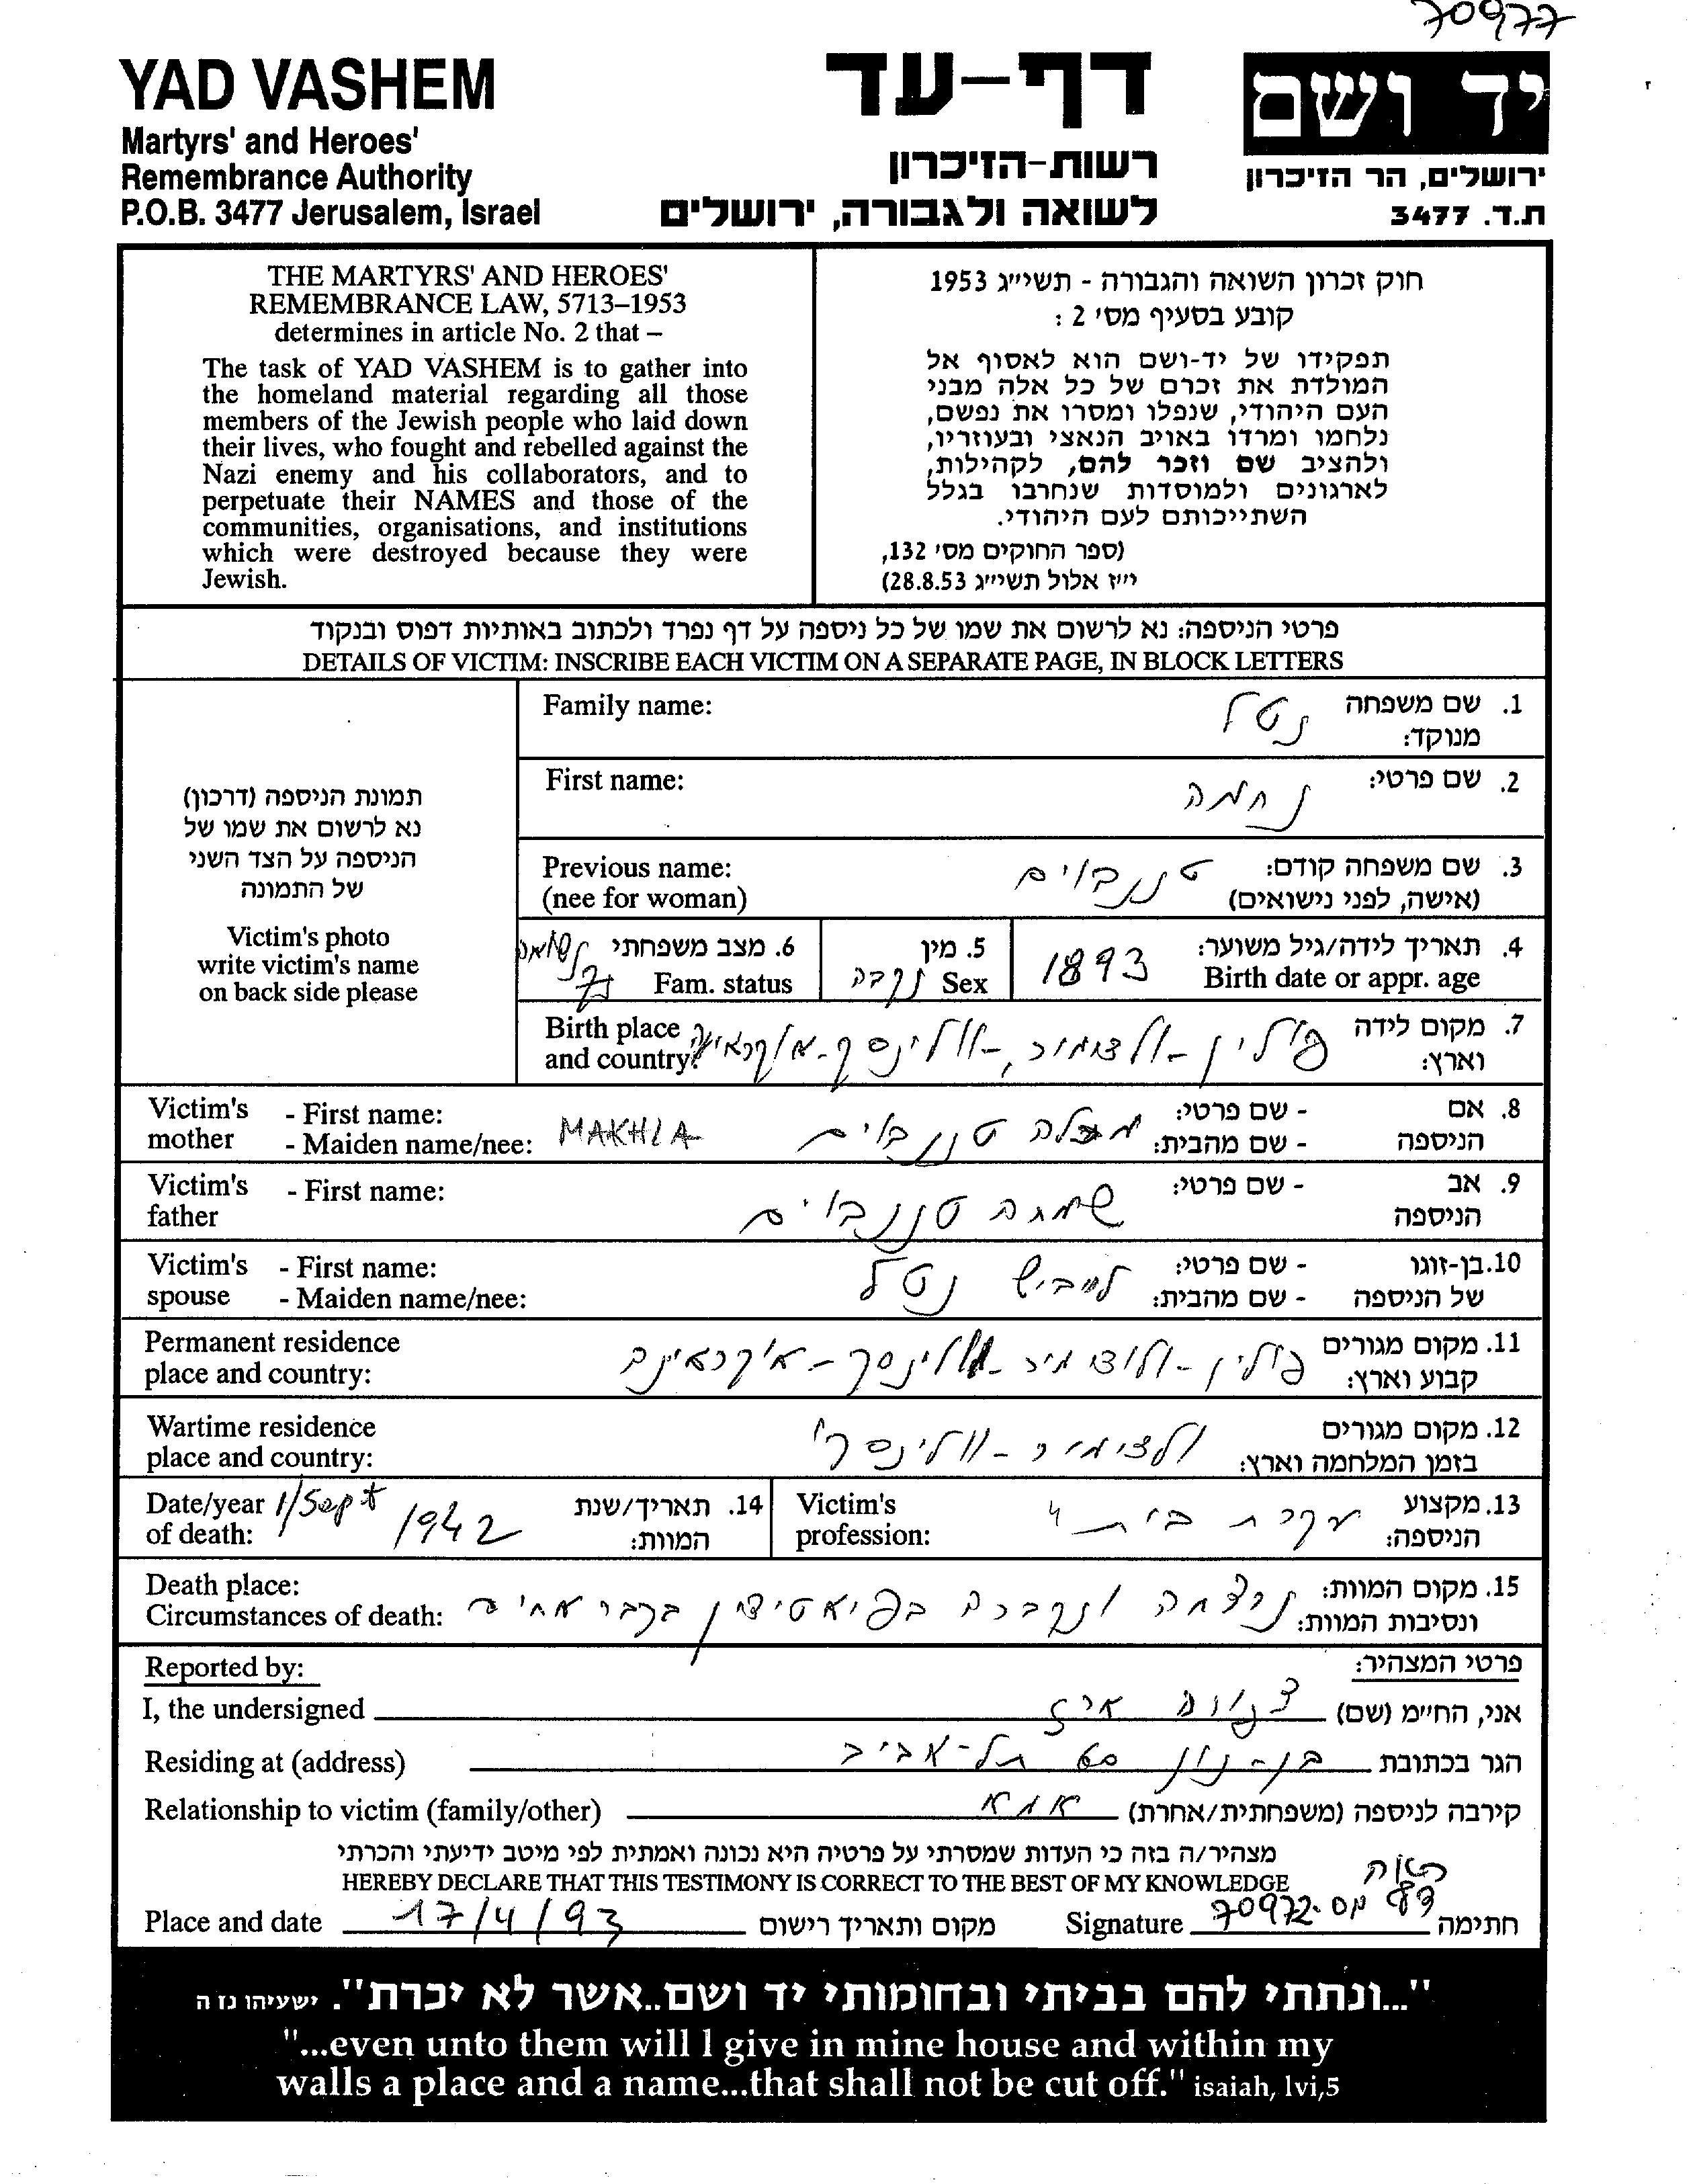 70977
YAD VASHEM
Martyrs' and Heroes'
Remembrance Authority
P.O.B. 3477 Jerusalem, Israel
דף-עד
רשות-הזיכרון
לשואה ולגבורה, ירושלים
יד ושם
ירושלים, הר הזיכרון
ת.ד. 3477
THE MARTYRS' AND HEROES'
REMEMBRANCE LAW, 5713–1953
determines in article No. 2 that –
The task of YAD VASHEM is to gather into
the homeland material regarding all those
members of the Jewish people who laid down
their lives, who fought and rebelled against the
Nazi enemy and his collaborators, and to
perpetuate their NAMES and those of the
communities, organisations, and institutions
which were destroyed because they were
Jewish.
חוק זכרון השואה והגבורה - תשי״ג 1953
קובע בסעיף מס׳ 2 :
תפקידו של יד-ושם הוא לאסוף אל
המולדת את זכרם של כל אלה מבני
העם היהודי, שנפלו ומסרו את נפשם,
נלחמו ומרדו באויב הנאצי ובעוזריו,
ולהציב שם וזכר להם, לקהילות,
לארגונים ולמוסדות שנחרבו בגלל
השתייכותם לעם היהודי.
(ספר החוקים מס׳ 132,
י״ז אלול תשי״ג 28.8.53)
פרטי הניספה: נא לרשום את שמו של כל ניספה על דף נפרד ולכתוב באותיות דפוס ובנקוד
DETAILS OF VICTIM: INSCRIBE EACH VICTIM ON A SEPARATE PAGE, IN BLOCK LETTERS
תמונת הניספה (דרכון)
נא לרשום את שמו של
הניספה על הצד השני
של התמונה
Victim's photo
write victim's name
on back side please
Family name: נטל 1. שם משפחה
מנוקד:
First name: נחמה 2. שם פרטי:
Previous name: טננבוים 3. שם משפחה קודם:
(nee for woman) (אישה, לפני נישואים)
4. תאריך לידה/גיל משוער: 1893
Birth date or appr. age
5. מין נקבה
Sex
6. מצב משפחתי נשואה
Fam. status
Birth place פולין-ולדימיר-וולינסק-אוקראינה 7. מקום לידה
and country: וארץ:
Victim's - First name: - שם פרטי: 8. אם
mother - Maiden name/nee: MAKHLA מכלה טננבוים - שם מהבית: הניספה
Victim's - First name: שמחה טננבוים - שם פרטי: 9. אב
father הניספה
Victim's - First name: לייביש נטל - שם פרטי: 10. בן-זוגו
spouse - Maiden name/nee: - שם מהבית: של הניספה
Permanent residence פולין-ולודימיר-וולינסק-אוקראינה 11. מקום מגורים
place and country: קבוע וארץ:
Wartime residence ולדימיר-וולינסקי 12. מקום מגורים
place and country: בזמן המלחמה וארץ:
Date/year 1/Sept 1942 14. תאריך/שנת
of death: המוות:
Victim's עקרת בית 13. מקצוע
profession: הניספה:
Death place: 15. מקום המוות:
Circumstances of death: נרצחה ונקברה בפיאטידין בקבר אחים ונסיבות המוות:
Reported by: פרטי המצהיר:
I, the undersigned ארז אני, החיי״מ (שם)
Residing at (address) בן-נון תל-אביב הגר בכתובת
Relationship to victim (family/other) אמא קירבה לניספה (משפחתית/אחרת)
מצהיר/ה בזה כי העדות שמסרתי על פרטיה היא נכונה ואמתית לפי מיטב ידיעתי והכרתי
HEREBY DECLARE THAT THIS TESTIMONY IS CORRECT TO THE BEST OF MY KNOWLEDGE
Place and date 17/4/93 מקום ותאריך רישום Signature דף מס. 70972 חתימה
"...ונתתי להם בביתי ובחומותי יד ושם..אשר לא יכרת". ישעיהו נז ה
"...even unto them will I give in mine house and within my
walls a place and a name...that shall not be cut off." isaiah, lvi,5